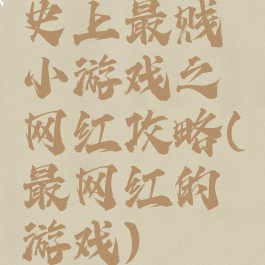 史上最贱
小游戏之
网红攻略(
最网红的
游戏)